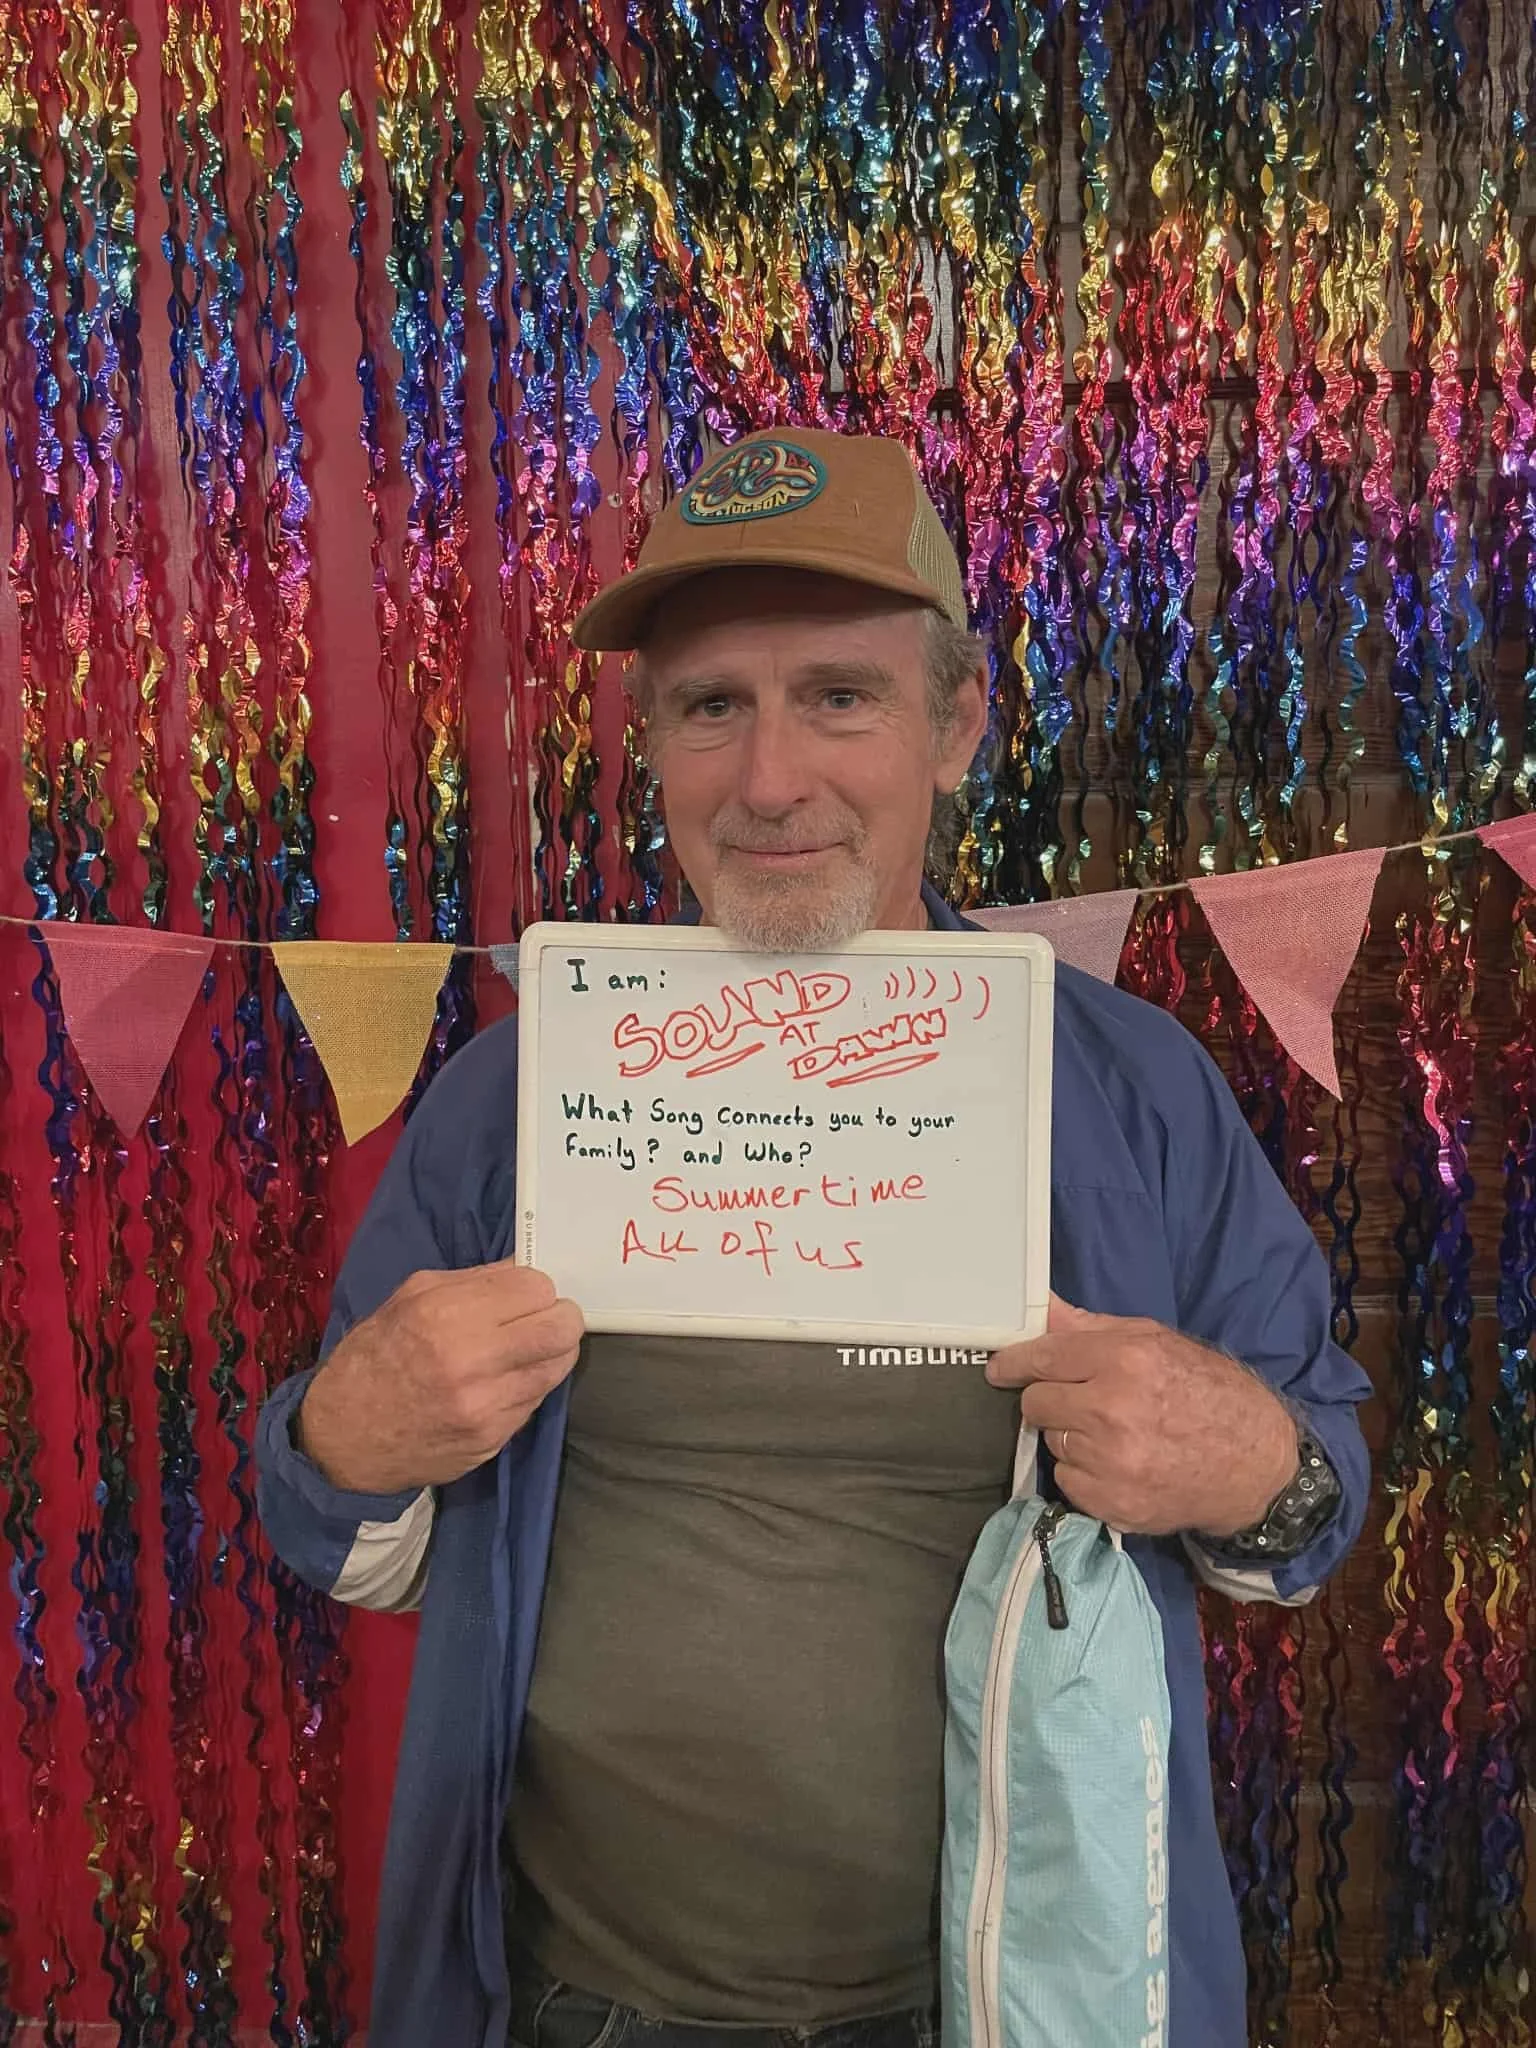 TUCSON
I am:
SOUND )))))
AT
DAWN
What Song Connects you to your
Family? and Who?
Summertime
All of us
U BRANDS
TIMBUK2